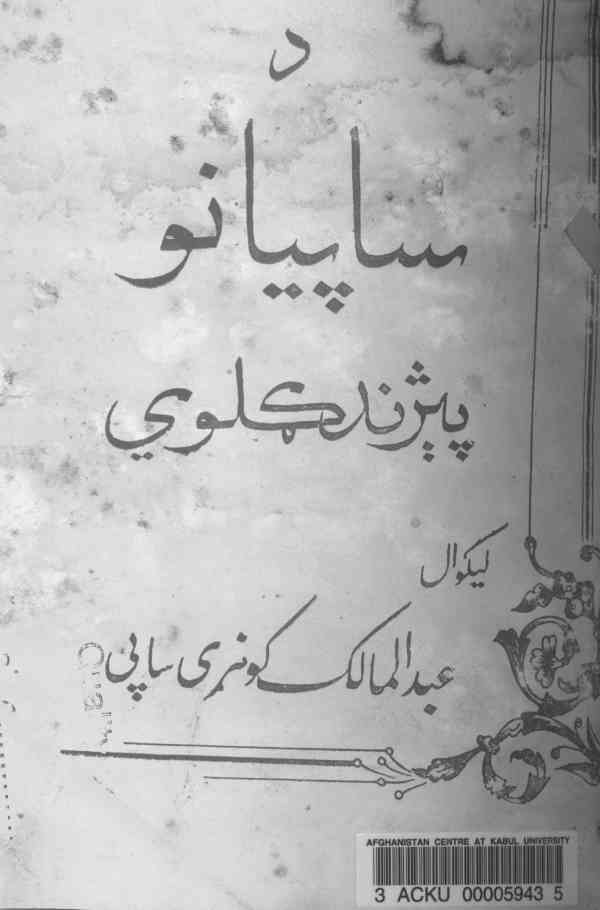 د
ساپیانو
پېژندګلوي
لیکوال
عبدالمالک کونړی ساپی
AFGHANISTAN CENTRE AT KABUL UNIVERSITY
3 ACKU 00005943 5